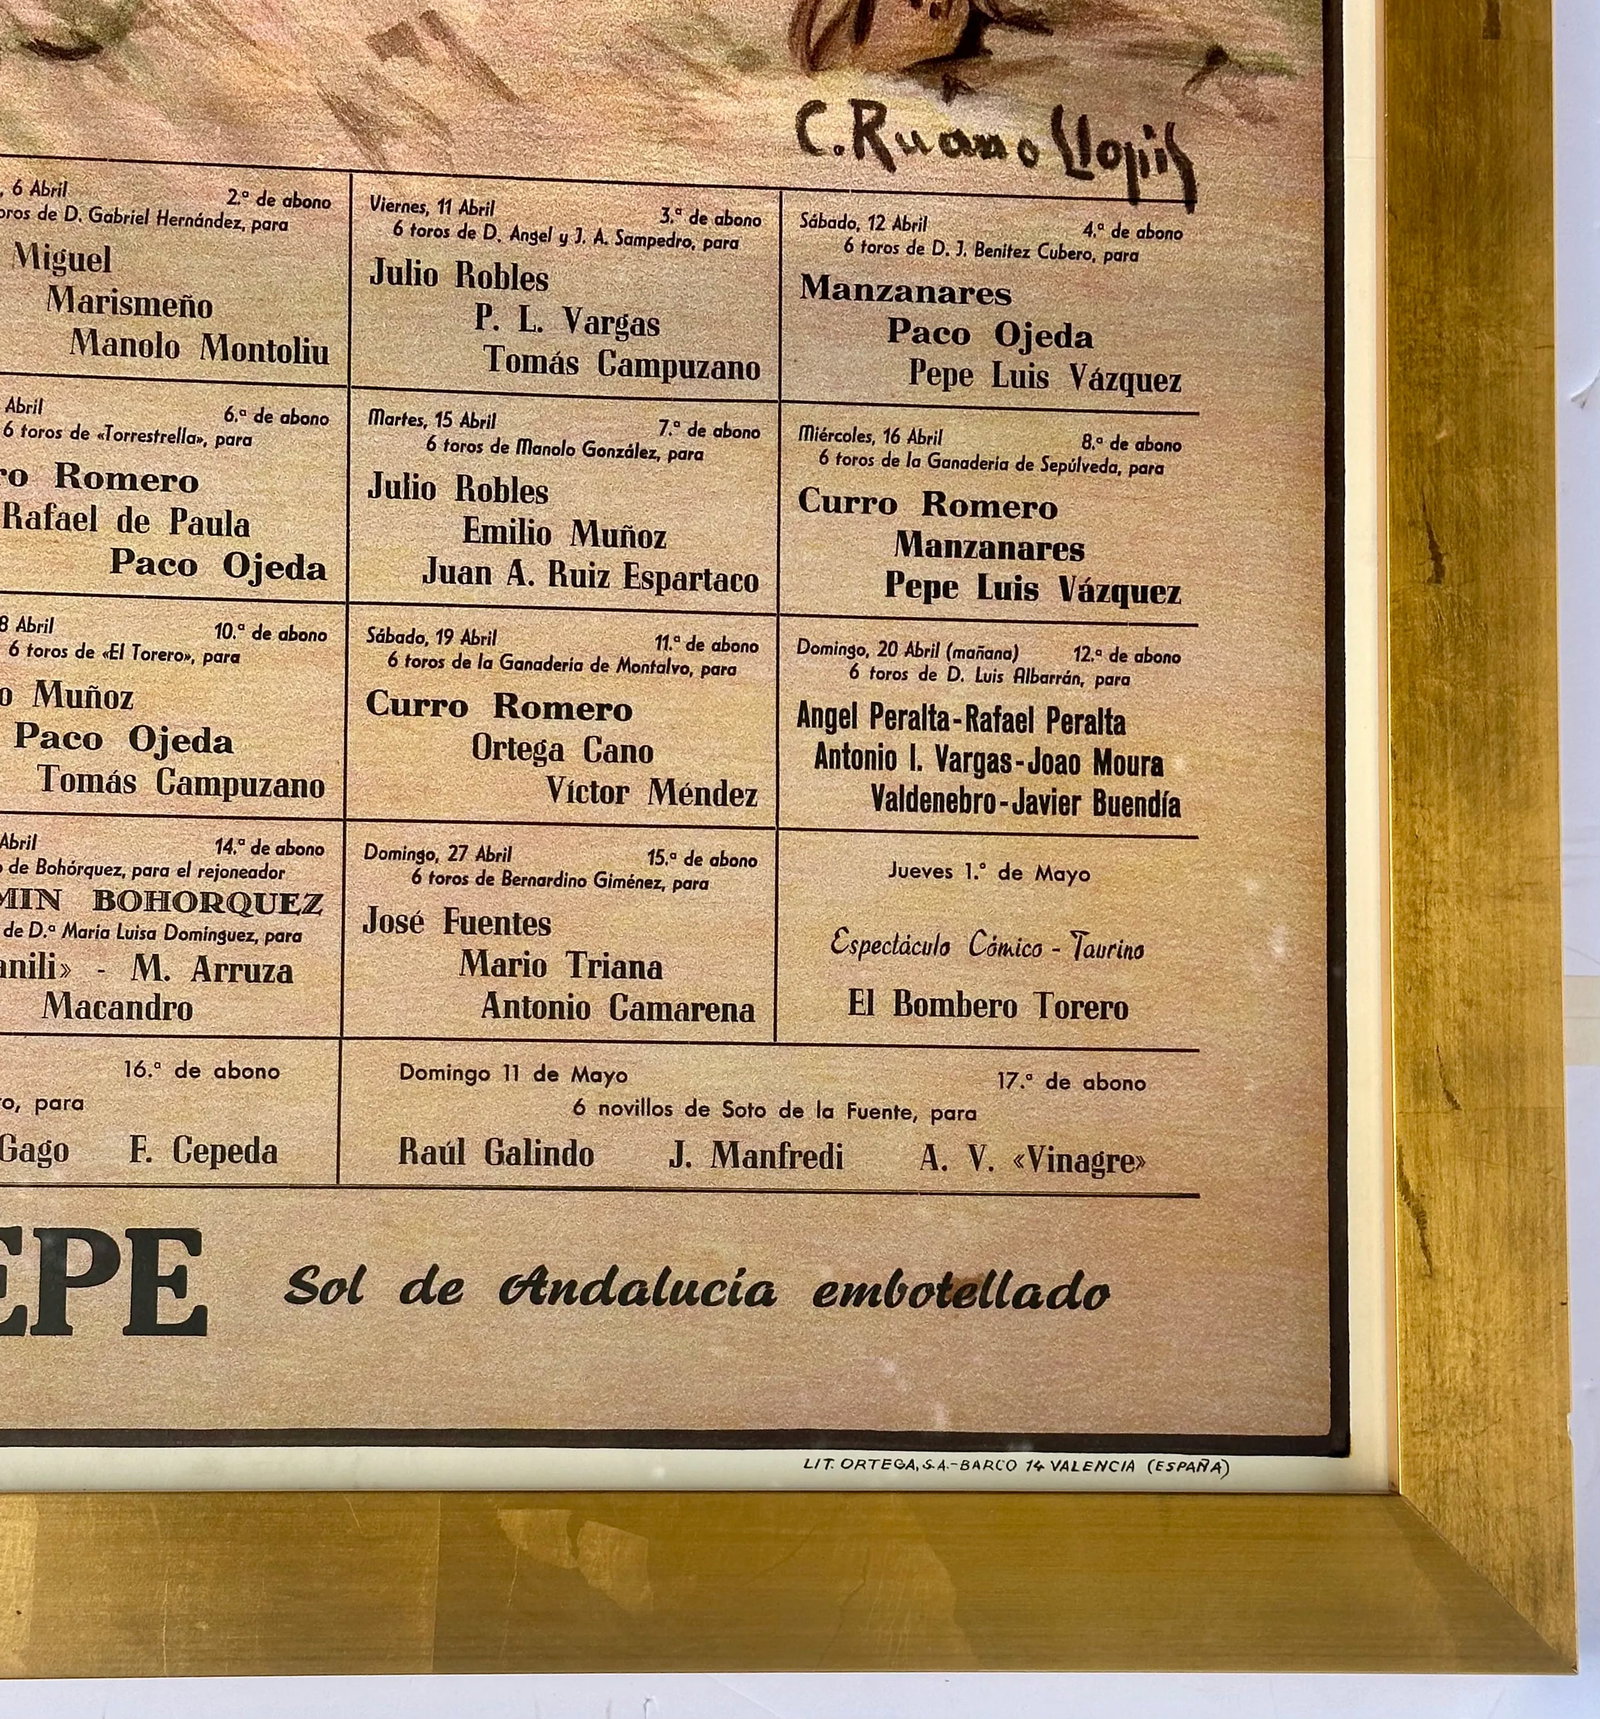 C. Ruano Llopis
, 6 Abril 2.ª de abono
oros de D. Gabriel Hernández, para
Miguel
Marismeño
Manolo Montoliu
Viernes, 11 Abril 3.ª de abono
6 toros de D. Angel y J. A. Sampedro, para
Julio Robles
P. L. Vargas
Tomás Campuzano
Sábado, 12 Abril 4.ª de abono
6 toros de D. J. Benitez Cubero, para
Manzanares
Paco Ojeda
Pepe Luis Vázquez
Abril 6.ª de abono
6 toros de «Torrestrella», para
ro Romero
Rafael de Paula
Paco Ojeda
Martes, 15 Abril 7.ª de abono
6 toros de Manolo González, para
Julio Robles
Emilio Muñoz
Juan A. Ruiz Espartaco
Miércoles, 16 Abril 8.ª de abono
6 toros de la Ganadería de Sepúlveda, para
Curro Romero
Manzanares
Pepe Luis Vázquez
8 Abril 10.ª de abono
6 toros de «El Torero», para
o Muñoz
Paco Ojeda
Tomás Campuzano
Sábado, 19 Abril 11.ª de abono
6 toros de la Ganadería de Montalvo, para
Curro Romero
Ortega Cano
Víctor Méndez
Domingo, 20 Abril (mañana) 12.ª de abono
6 toros de D. Luis Albarrán, para
Angel Peralta-Rafael Peralta
Antonio I. Vargas-Joao Moura
Valdenebro-Javier Buendía
Abril 14.ª de abono
o de Bohórquez, para el rejoneador
MIN BOHORQUEZ
de D.ª Maria Luisa Domínguez, para
anili» - M. Arruza
Macandro
Domingo, 27 Abril 15.ª de abono
6 toros de Bernardino Giménez, para
José Fuentes
Mario Triana
Antonio Camarena
Jueves 1.º de Mayo
Espectáculo Cómico - Taurino
El Bombero Torero
16.ª de abono
o, para
Gago F. Cepeda
Domingo 11 de Mayo 17.ª de abono
6 novillos de Soto de la Fuente, para
Raúl Galindo J. Manfredi A. V. «Vinagre»
EPE Sol de Andalucía embotellado
LIT. ORTEGA, S.A.-BARCO 14 VALENCIA (ESPAÑA)